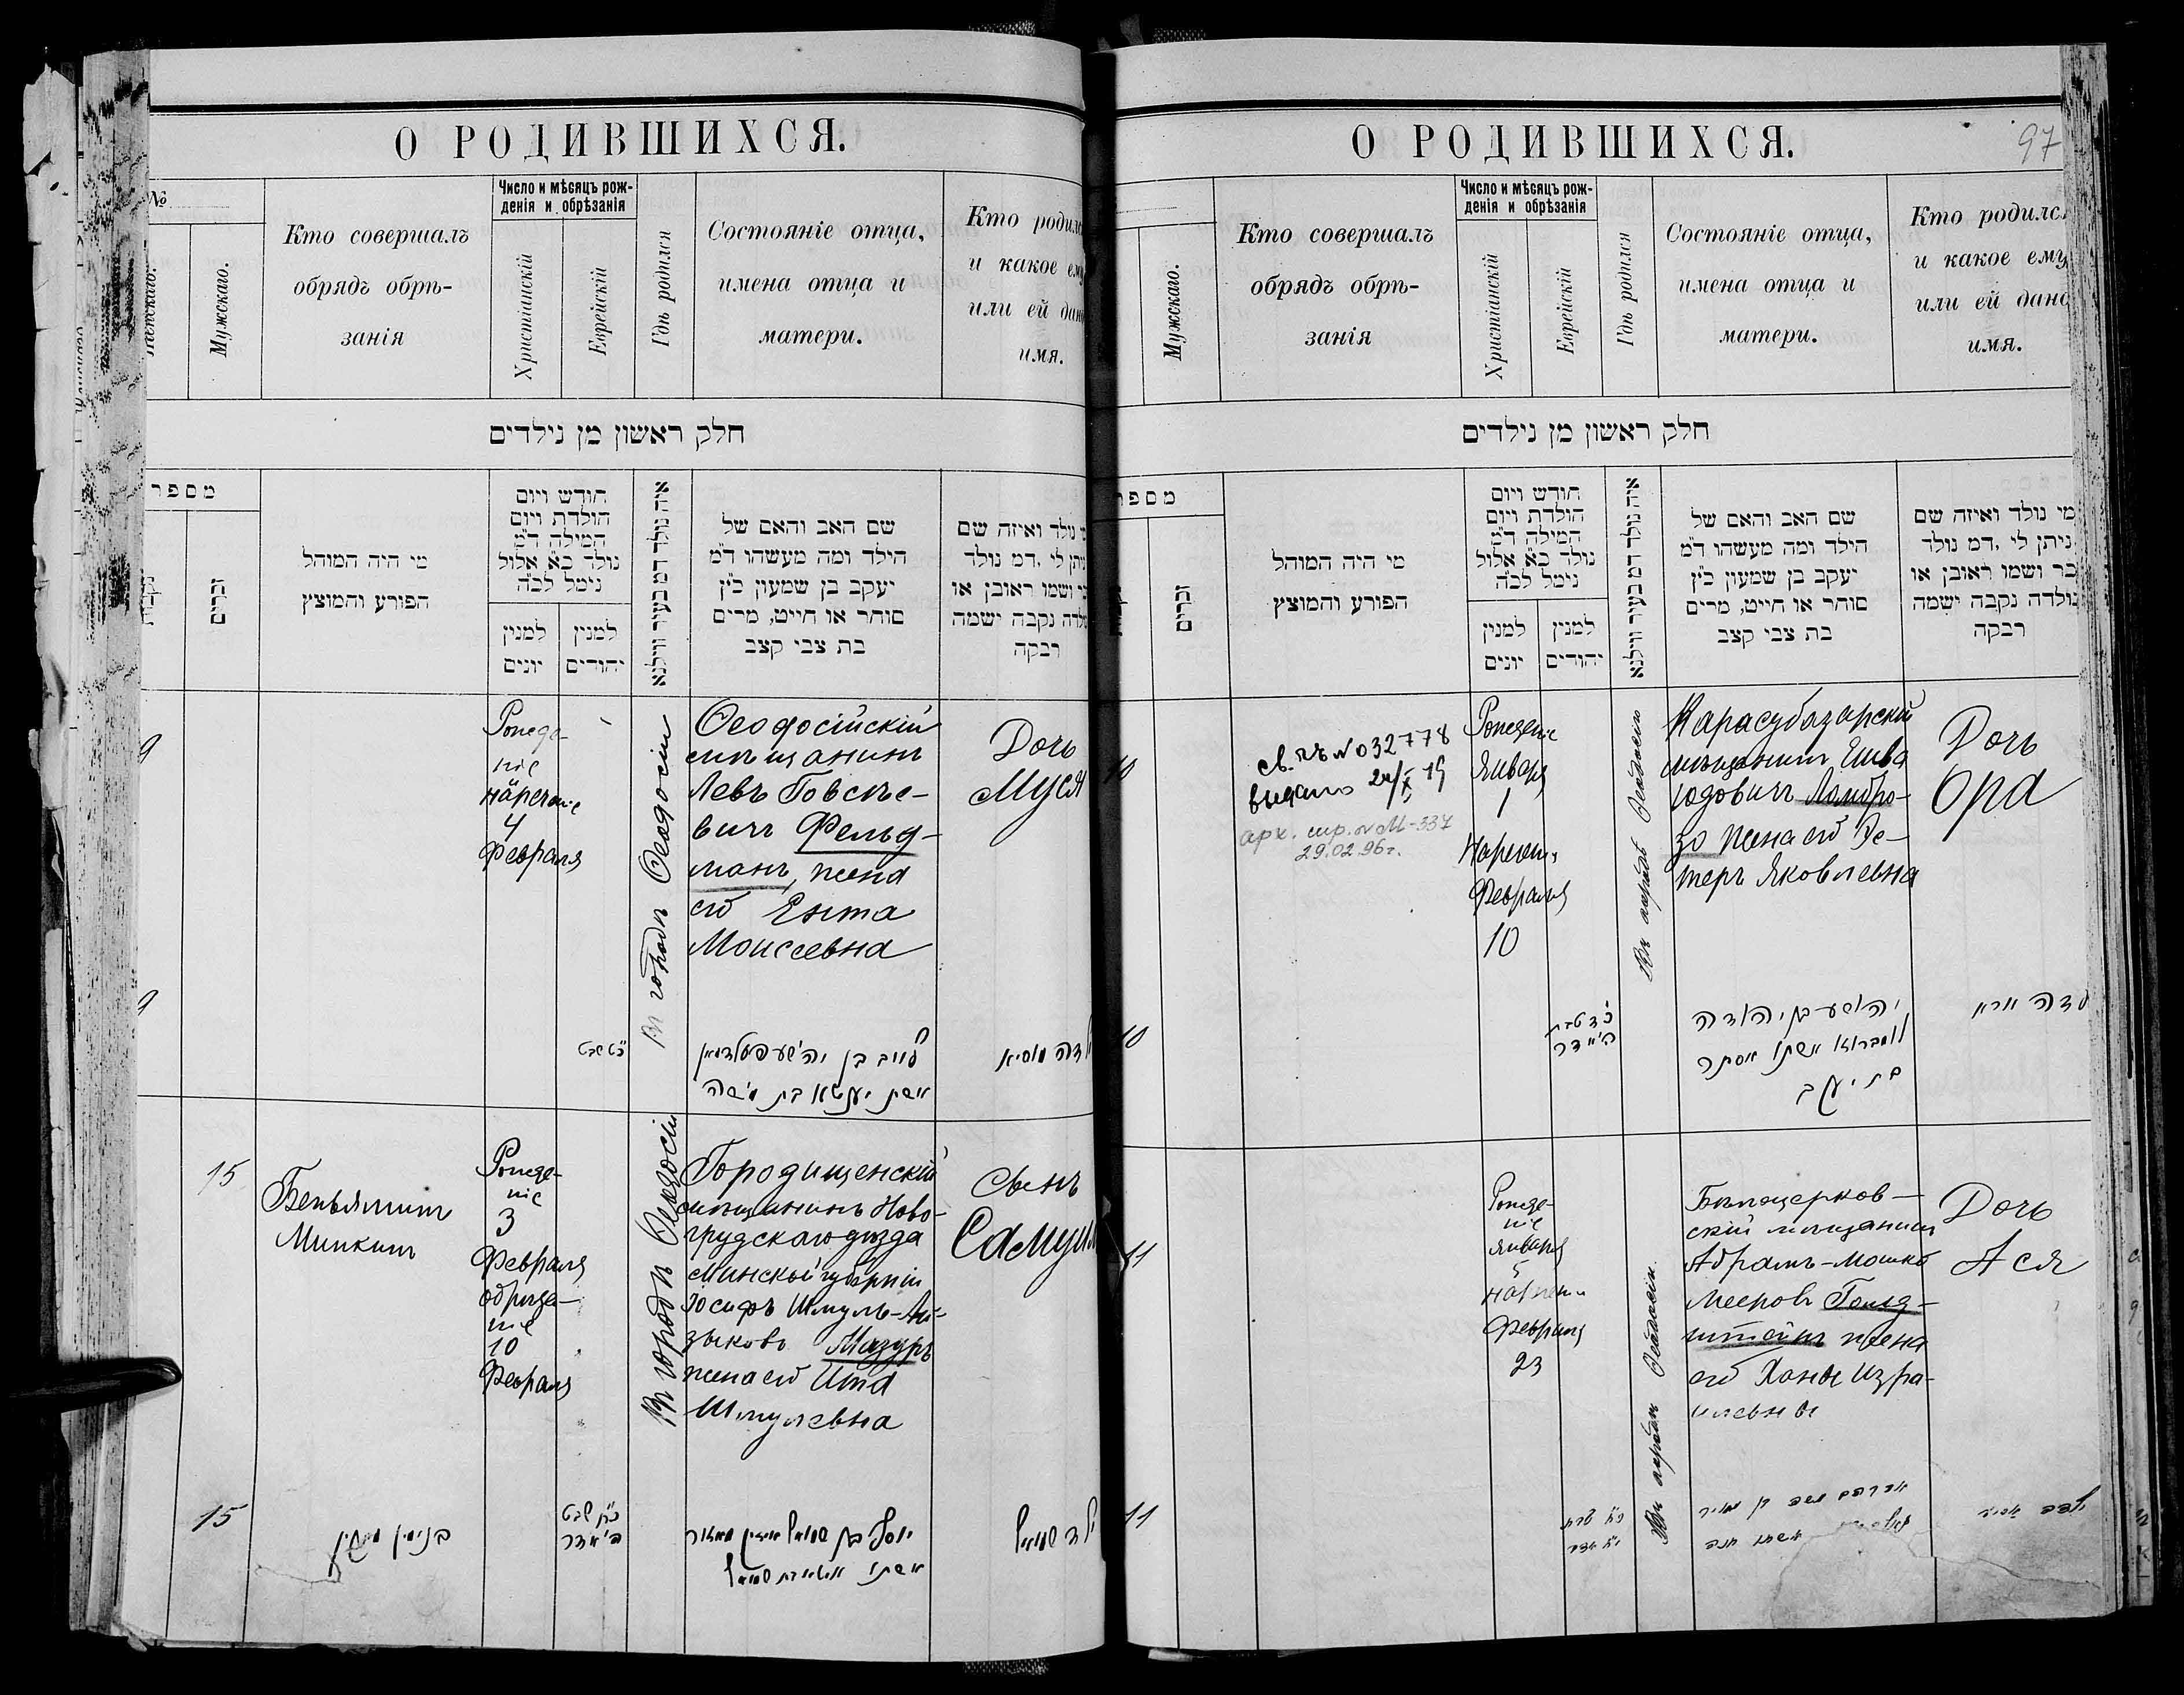 О РОДИВШИХСЯ.
№
Женскаго.
Мужскаго.
Кто совершалъ
обрядъ обрѣ-
занія
Число и мѣсяцъ рож-
денія и обрѣзанія
Христіанскій
Еврейскій
Гдѣ родился
Состояніе отца,
имена отца и
матери.
Кто родилс
и какое ему
или ей дан
имя.
חלק ראשון מן נילדים
מספר
זכרים
מי היה המוהל
הפורע והמוצץ
חודש ויום
הולדת ויום
המילה ד״מ
נולד כ״א אלול
נימל לכ״ה
למנין
יונים
למנין
יהודים
איה נולד דמ בעיר ווילנא
שם האב והאם של
הילד ומה מעשהו ד״מ
יעקב בן שמעון כ״ץ
סוחר או חייט, מרים
בת צבי קצב
נולד ואיזה שם
ניתן לי .דמ נולד
ושמו ראובן או
נקבה ישמה
רבקה
9
Рожде-
ніе
нареченіе
4
Февраля
Въ городѣ Ѳеодосіи
Ѳеодосійскій
мѣщанинъ
Левъ Говсѣе-
вичъ Фельд-
манъ, жена
его Ента
Моисеевна
Дочь
Муся
9
כ״ט שבט
לייב בן יהושע פעלדמאן
אשתו יענטא בת משה
ילדה מוסיא
15
Беньяминъ
Минкинъ
Рожде-
ніе
3
Февраля
обрѣза-
ніе
10
Февраля
Въ городѣ Ѳеодосіи
Городищенскій
мѣщанинъ Ново-
грудскаго уѣзда
Минской губерніи
Іосифъ Шмуль-Ай-
зыковъ Мазуръ
жена его Ита
Шмулевна
Сынъ
Самуил
15
בנימין מינקין
כ״ח שבט
ה׳ אדר
יוסף בן שמואל אייזיק מאזור
אשתו איטא בת שמואל
ילד שמואל
О РОДИВШИХСЯ.
97
Мужскаго.
Кто совершалъ
обрядъ обрѣ-
занія
Число и мѣсяцъ рож-
денія и обрѣзанія
Христіанскій
Еврейскій
Гдѣ родился
Состояніе отца,
имена отца и
матери.
Кто родилс
и какое ему
или ей дано
имя.
חלק ראשון מן נילדים
מספר
זכרים
מי היה המוהל
הפורע והמוצץ
חודש ויום
הולדת ויום
המילה ד״מ
נולד כ״א אלול
נימל לכ״ה
למנין
יונים
למנין
יהודים
איה נולד דמ בעיר ווילנא
שם האב והאם של
הילד ומה מעשהו ד״מ
יעקב בן שמעון כ״ץ
סוחר או חייט, מרים
בת צבי קצב
מי נולד ואיזה שם
ניתן לי .דמ נולד
זכר ושמו ראובן או
נולדה נקבה ישמה
רבקה
10
св. ѣъ № 032778
выдано 24/X 19
арх. спр. № М-337
29.02.96г.
Рожденіе
Января
1
Наречен
Февраля
10
Въ городѣ Ѳеодосіи
Карасубазарскій
мѣщанинъ Ешва
Юдовичъ Ломбро-
зо жена его Эс-
теръ Яковлевна
Дочь
Ора
10
כ״ד טבת
ה׳ אדר
יהושע בן יהודה
לומברוזו אשתו אסתר
בת יעקב
ילדה אורא
11
Рожде-
ніе
Января
5
наречені
Февраля
23
Въ городѣ Ѳеодосіи.
Бѣлоцерков-
скій мѣщанинъ
Абрамъ-Мошко
Мееровъ Гольд-
штейнъ жена
его Ханы Изра-
илевны
Дочь
Ася
11
אברהם משה בן מאיר
אשתו חנה
ילדה אסיא